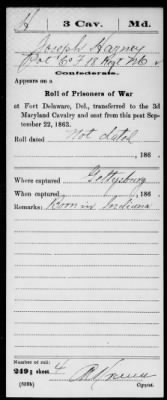 H | 3 Cav. | Md.
Joseph Harney
Pvt Co F 18 Regt
Confederate.
Appears on a
Roll of Prisoners of War
at Fort Delaware, Del., transferred to the 3d
Maryland Cavalry and sent from this post Sep-
tember 22, 1863.
Roll dated Not dated
, 186 .
Where captured Gettysburg
When captured , 186 .
Remarks: Born in Indiana
Number of roll:
249; sheet 4
(639b) Copyist.